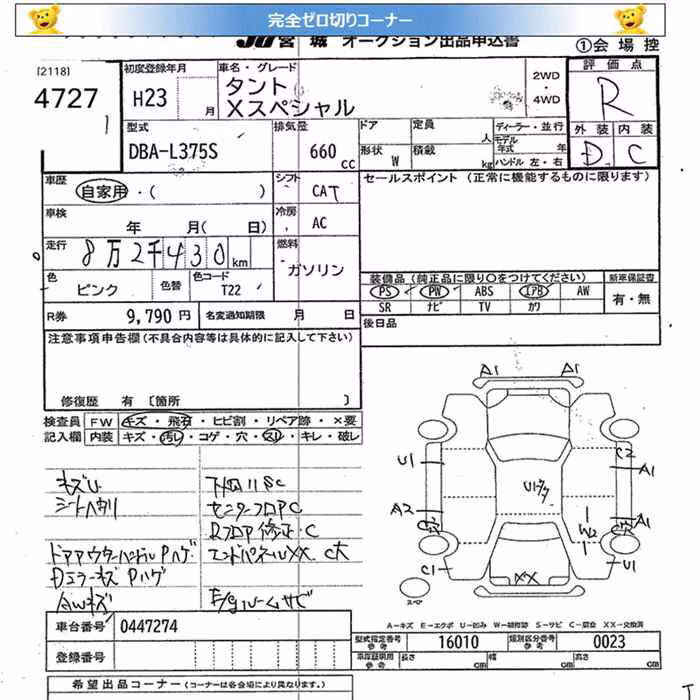 完全ゼロ切りコーナー
JU宮城 オークション出品申込書 ①会場控
[2118]
4727
初度登録年月
H23 月
車名・グレード
タント
Xスペシャル
2WD
・
4WD
評価点
R
外装 内装
D C
型式
DBA-L375S
排気量
660 cc
ドア 定員 人
形状 W 積載 kg
ディーラー・並行
モデル年式 年
ハンドル 左・右
車歴
自家用・( )
シフト
CAT
セールスポイント (正常に機能するものに限ります)
車検
年 月( 日)
冷房
AC
走行
8万2千430km
燃料
ガソリン
色
ピンク
色替
色コード
T22
装備品 (純正品に限り○をつけてください)
PS PW ABS エアB AW
SR ナビ TV カワ
新車保証書
有・無
R券 9,790円 名変通知期限 月 日
後日品
注意事項申告欄(不具合内容等は具体的に記入して下さい)
修復歴 有 [箇所 ]
検査員 FW キズ・飛石・ヒビ割・リペア跡・×要
記入欄 内装 キズ・汚レ・コゲ・穴・スレ・キレ・破レ
キズU
センターフロアC
Rフロア修正・C
ドアアウターハンドルPハゲ
エンドパネルXX C大
Dミラーキズ Pハゲ
AWキズ
E/gルームサビ
A1 A1
U1 C2 A1
A2 A1
W2
C1 XX U1
スペ
A-キズ E-エクボ U-凹み W-補修跡 S-サビ C-腐食 XX-交換済
車台番号 0447274
型式指定番号 参考 16010 類別区分番号 参考 0023
登録番号
車庫証明用 参考 長さ cm 幅 cm 高さ cm
希望出品コーナー (コーナーは各会場により異なります。)